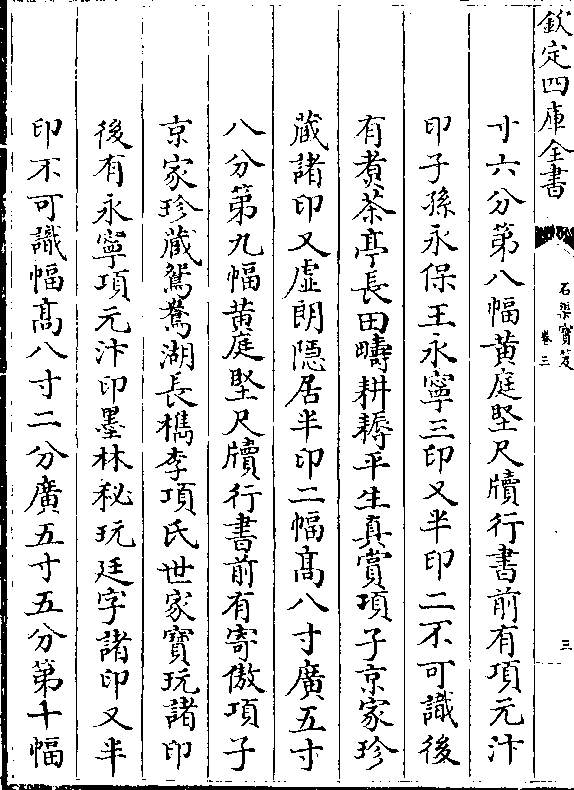 欽定四庫全書
石渠寶笈
卷三
三
寸六分第八幅黄庭堅尺牘行書前有項元汴
印子孫永保王永寧三印又半印二不可識後
有煮茶亭長田疇耕耨平生真賞項子京家珍
蔵諸印又虚朗隱居半印二幅髙八寸廣五寸
八分第九幅黄庭堅尺牘行書前有寄傲項子
京家珍蔵鴛鴦湖長檇李項氏世家寶玩諸印
後有永寧項元汴印墨林秘玩廷字諸印又半
印不可識幅髙八寸二分廣五寸五分第十幅